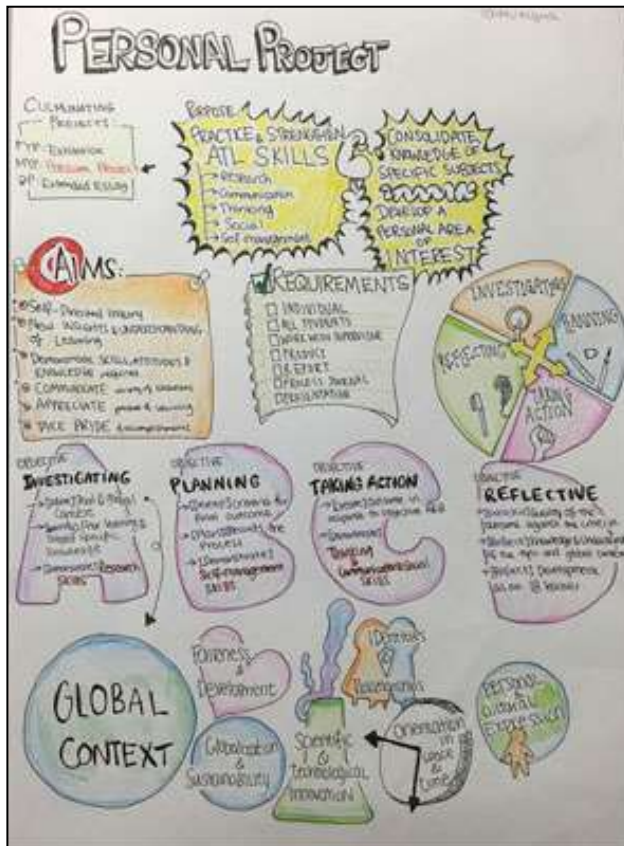 PERSONAL PROJECT
CULMINATING
PROJECTS:
PYP: Exhibition
MYP: Personal Project
DP: Extended Essay
PURPOSE:
PRACTICE & STRENGTHEN
ATL SKILLS
Research
Communication
Thinking
Social
Self-management
CONSOLIDATE
KNOWLEDGE OF
SPECIFIC SUBJECTS
DEVELOP A
PERSONAL AREA
OF
INTEREST
AIMS:
Self-Directed Inquiry
New INSIGHTS & UNDERSTANDING
of Learning
Demonstrate SKILLS, ATTITUDES &
KNOWLEDGE
COMMUNICATE
APPRECIATE process of learning
TAKE PRIDE
REQUIREMENTS
INDIVIDUAL
ALL STUDENTS
WORK WITH SUPERVISOR
PRODUCT
REPORT
PROCESS JOURNAL
PRESENTATION
INVESTIGATING
PLANNING
TAKING
ACTION
REFLECTING
OBJECTIVE
INVESTIGATING
Context
Research
SKILLS
OBJECTIVE
PLANNING
criteria for
final outcome
the
process
Self-management
SKILLS
OBJECTIVE
TAKING ACTION
outcome in
response to
Thinking &
Communication & Social
SKILLS
OBJECTIVE
REFLECTIVE
Quality of the
outcome against the criteria
Knowledge &
of the topic and global context
Development
as an IB learner
GLOBAL
CONTEXT
Fairness
&
Development
Globalization
&
Sustainability
Scientific
&
technological
Innovation
Identities
&
Relationships
Orientation
in
space &
time
Personal
&
cultural
Expression